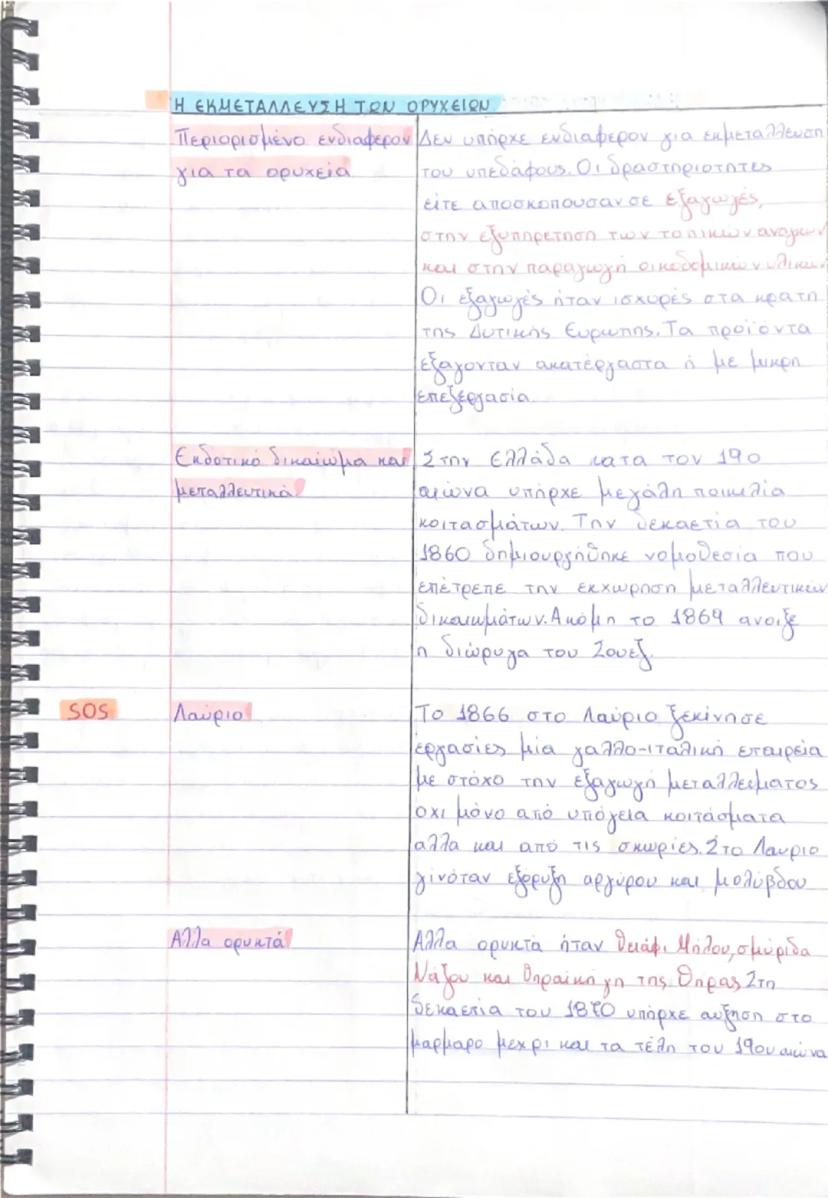 Η ΕΚΜΕΤΑΛΛΕΥΣΗ ΤΩΝ ΟΡΥΧΕΙΩΝ
Περιορισμένο ενδιαφερον
για τα ορυχεία
Δεν υπήρχε ενδιαφερον για εκμεταλλευση
του υπεδάφους. Οι δραστηριοτητες
είτε αποσκοπουσαν σε εξαγωγές,
στην εξυπηρετηση των τοπικών αναγκων
και στην παραγωγή οικοδομικών υλικων.
Οι εξαγωγές ήταν ισχυρές στα κρατη
της Δυτικής Ευρωπης. Τα προϊοντα
εξαγονταν ακατέργαστα ή με μικρη
επεξεργασία.
Εκδοτικό δικαίωμα και
μεταλλευτικά
Στην Ελλάδα κατα τον 19ο
αιώνα υπήρχε μεγάλη ποικιλία
κοιτασμάτων. Την δεκαετία του
1860 δημιουργήθηκε νομοθεσία που
επέτρεπε την εκχωρηση μεταλλευτικών
δικαιωμάτων. Ακόμη το 1869 ανοιξε
η διώρυγα του Σουεζ.
SOS
Λαύριο
Το 1866 στο Λαύριο ξεκίνησε
εργασίες μία γαλλο-ιταλική εταιρεία
με στόχο την εξαγωγή μεταλλεύματος
οχι μόνο από υπόγεια κοιτάσματα
αλλα και από τις σκωρίες. Στο Λαυριο
γινόταν εξορυξη αργύρου και μολύβδου
Αλλα ορυκτά
Αλλα ορυκτα ήταν θειάφι Μήλου, σμύριδα
Ναξου και θηραϊκή γη της Θηρας. Στη
δεκαετια του 1870 υπήρχε αυξηση στο
μαρμαρο μεχρι και τα τέλη του 19ου αιώνα